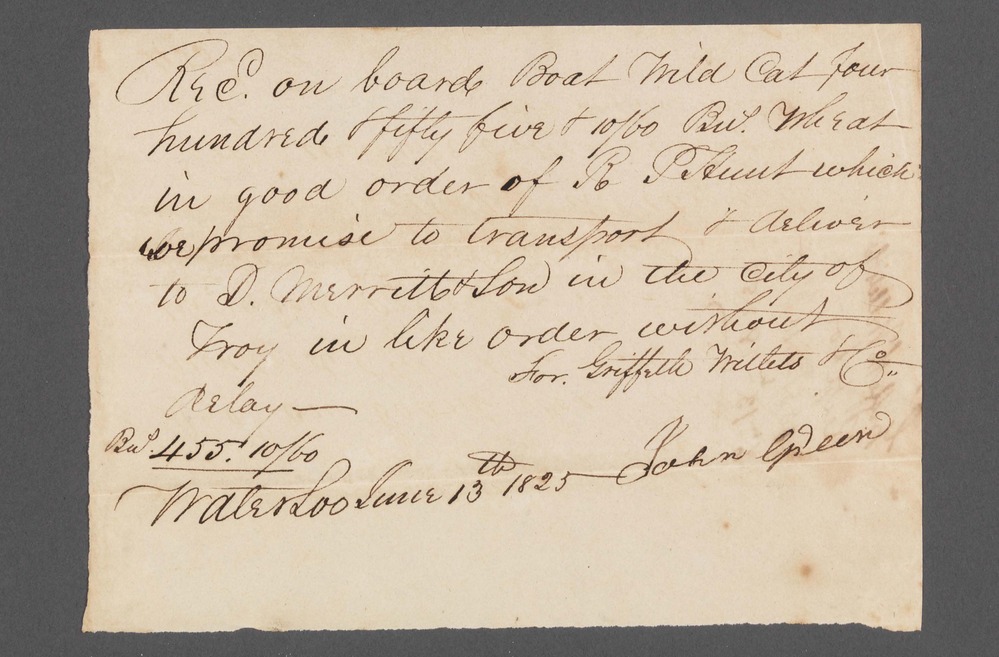 Recd. on board Boat Wild Cat four
hundred & fifty five & 10/60 Bus. Wheat
in good order of R P Hunt which
we promise to transport & deliver
to D. Merritt & Son in the City of
Troy in like order without
For. Griffeth Willets & Co.
delay —
Bus. 455. 10/60
John Green
Waterloo June 13th 1825